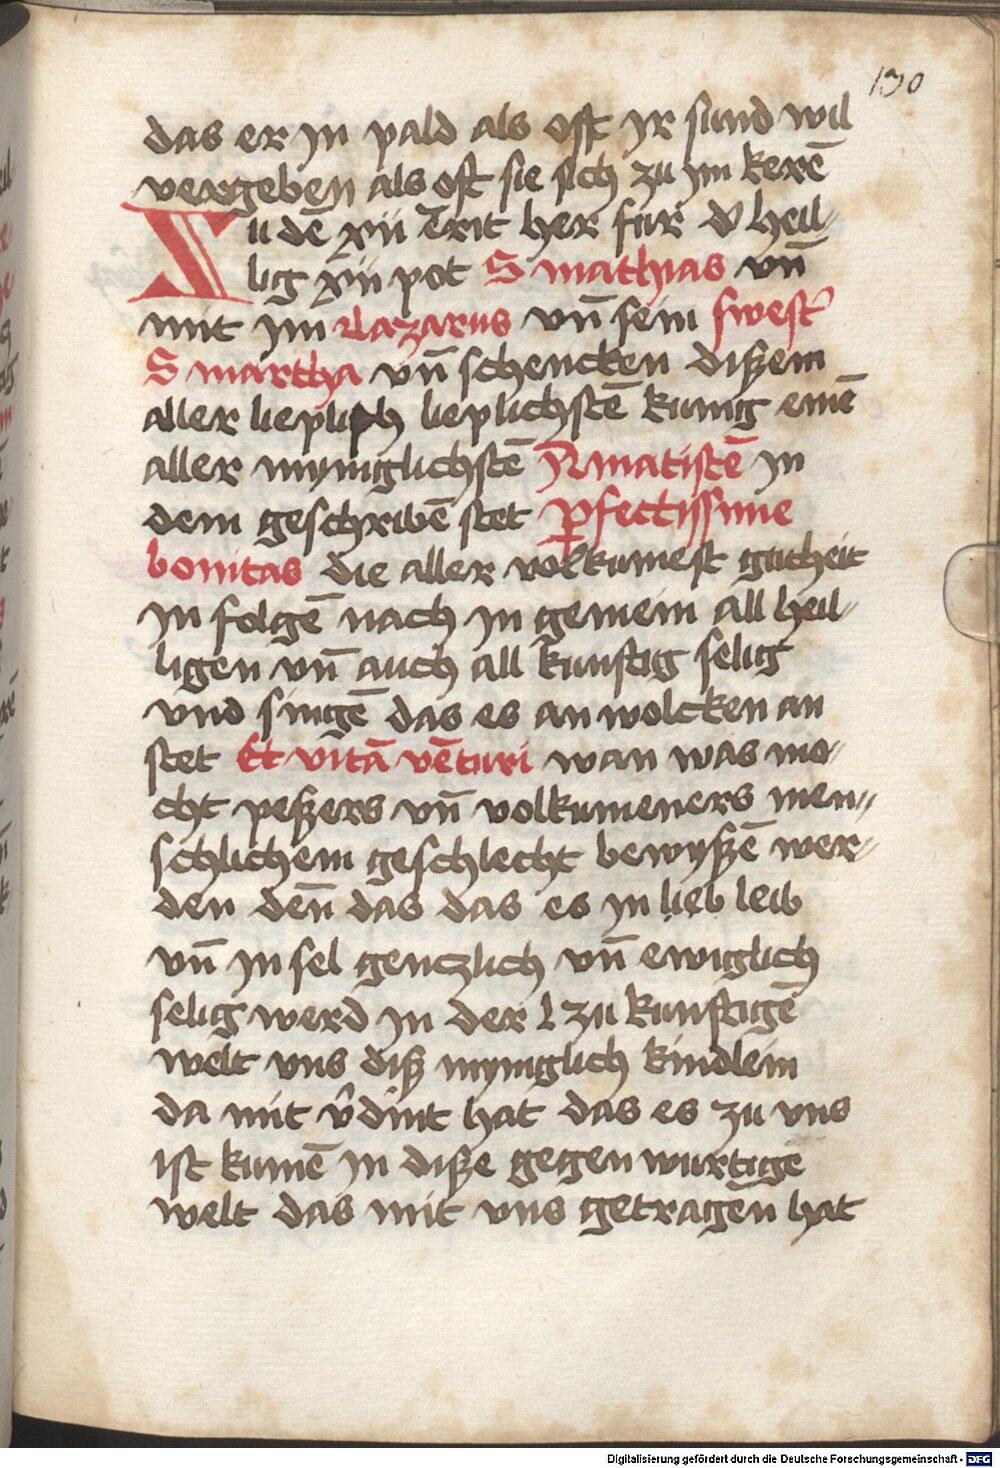 130
das er jn pald als offt jr sund wil
vergeben als oft sie sich zu jm kerē
Zu dē xii t̄rit her fur d' heil-
lig xiii pot S mathias vn̄
mit jm Lazarus vn̄ sein swest'
S martha vn̄ schencken dißem
aller lieplich lieplichstē kunig einē
aller mynniglichstē Amatistē jn
dem geschribē stet perfectissime
bonitas die aller volkumest gutheit
jn folgē nach jn gemein all heil-
ligen vn̄ auch all kunftig selig
vnd singē das es an wolcken an
stet Et vitā vēturi wan was mo-
cht peßers vn̄ volkumeners men-
schlichem geschlecht bewyßē wer-
den den̄ das das es jn lieb leib
vn̄ jn sel genczlich vn̄ ewiglich
selig werd jn der zu kunftigē
welt vns diß mynniglich kindlein
da mit v'dint hat das es zu vns
ist kumē jn diße gegen wurtige
welt das mit vns getragen hat
Digitalisierung gefördert durch die Deutsche Forschungsgemeinschaft - DFG